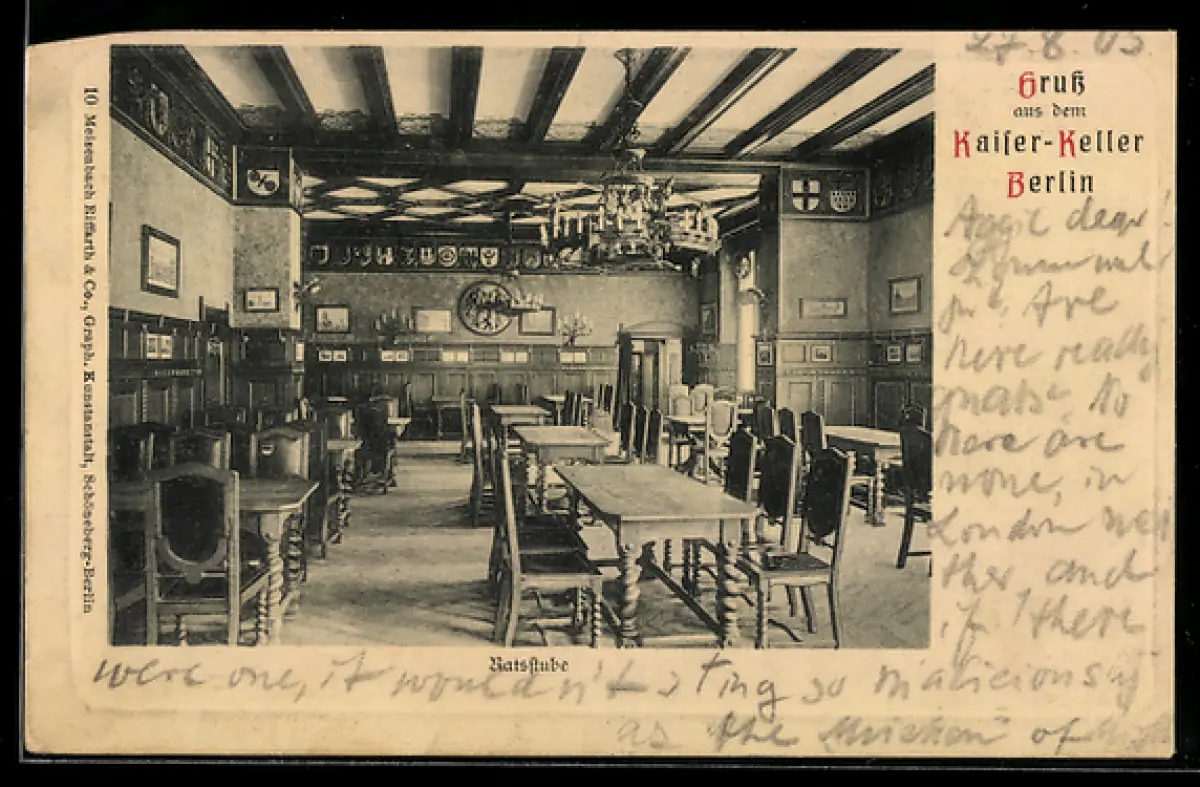 27.8.03
Gruß
aus dem
Kaiser-Keller
Berlin
10 Meisenbach Riffarth & Co., Graph. Kunstanstalt, Schöneberg-Berlin
dear!
Are
here really
No
there are
none, in
London nei
ther, and
if there
Ratsstube
were one, it wouldn't sting so maliciously
as the of